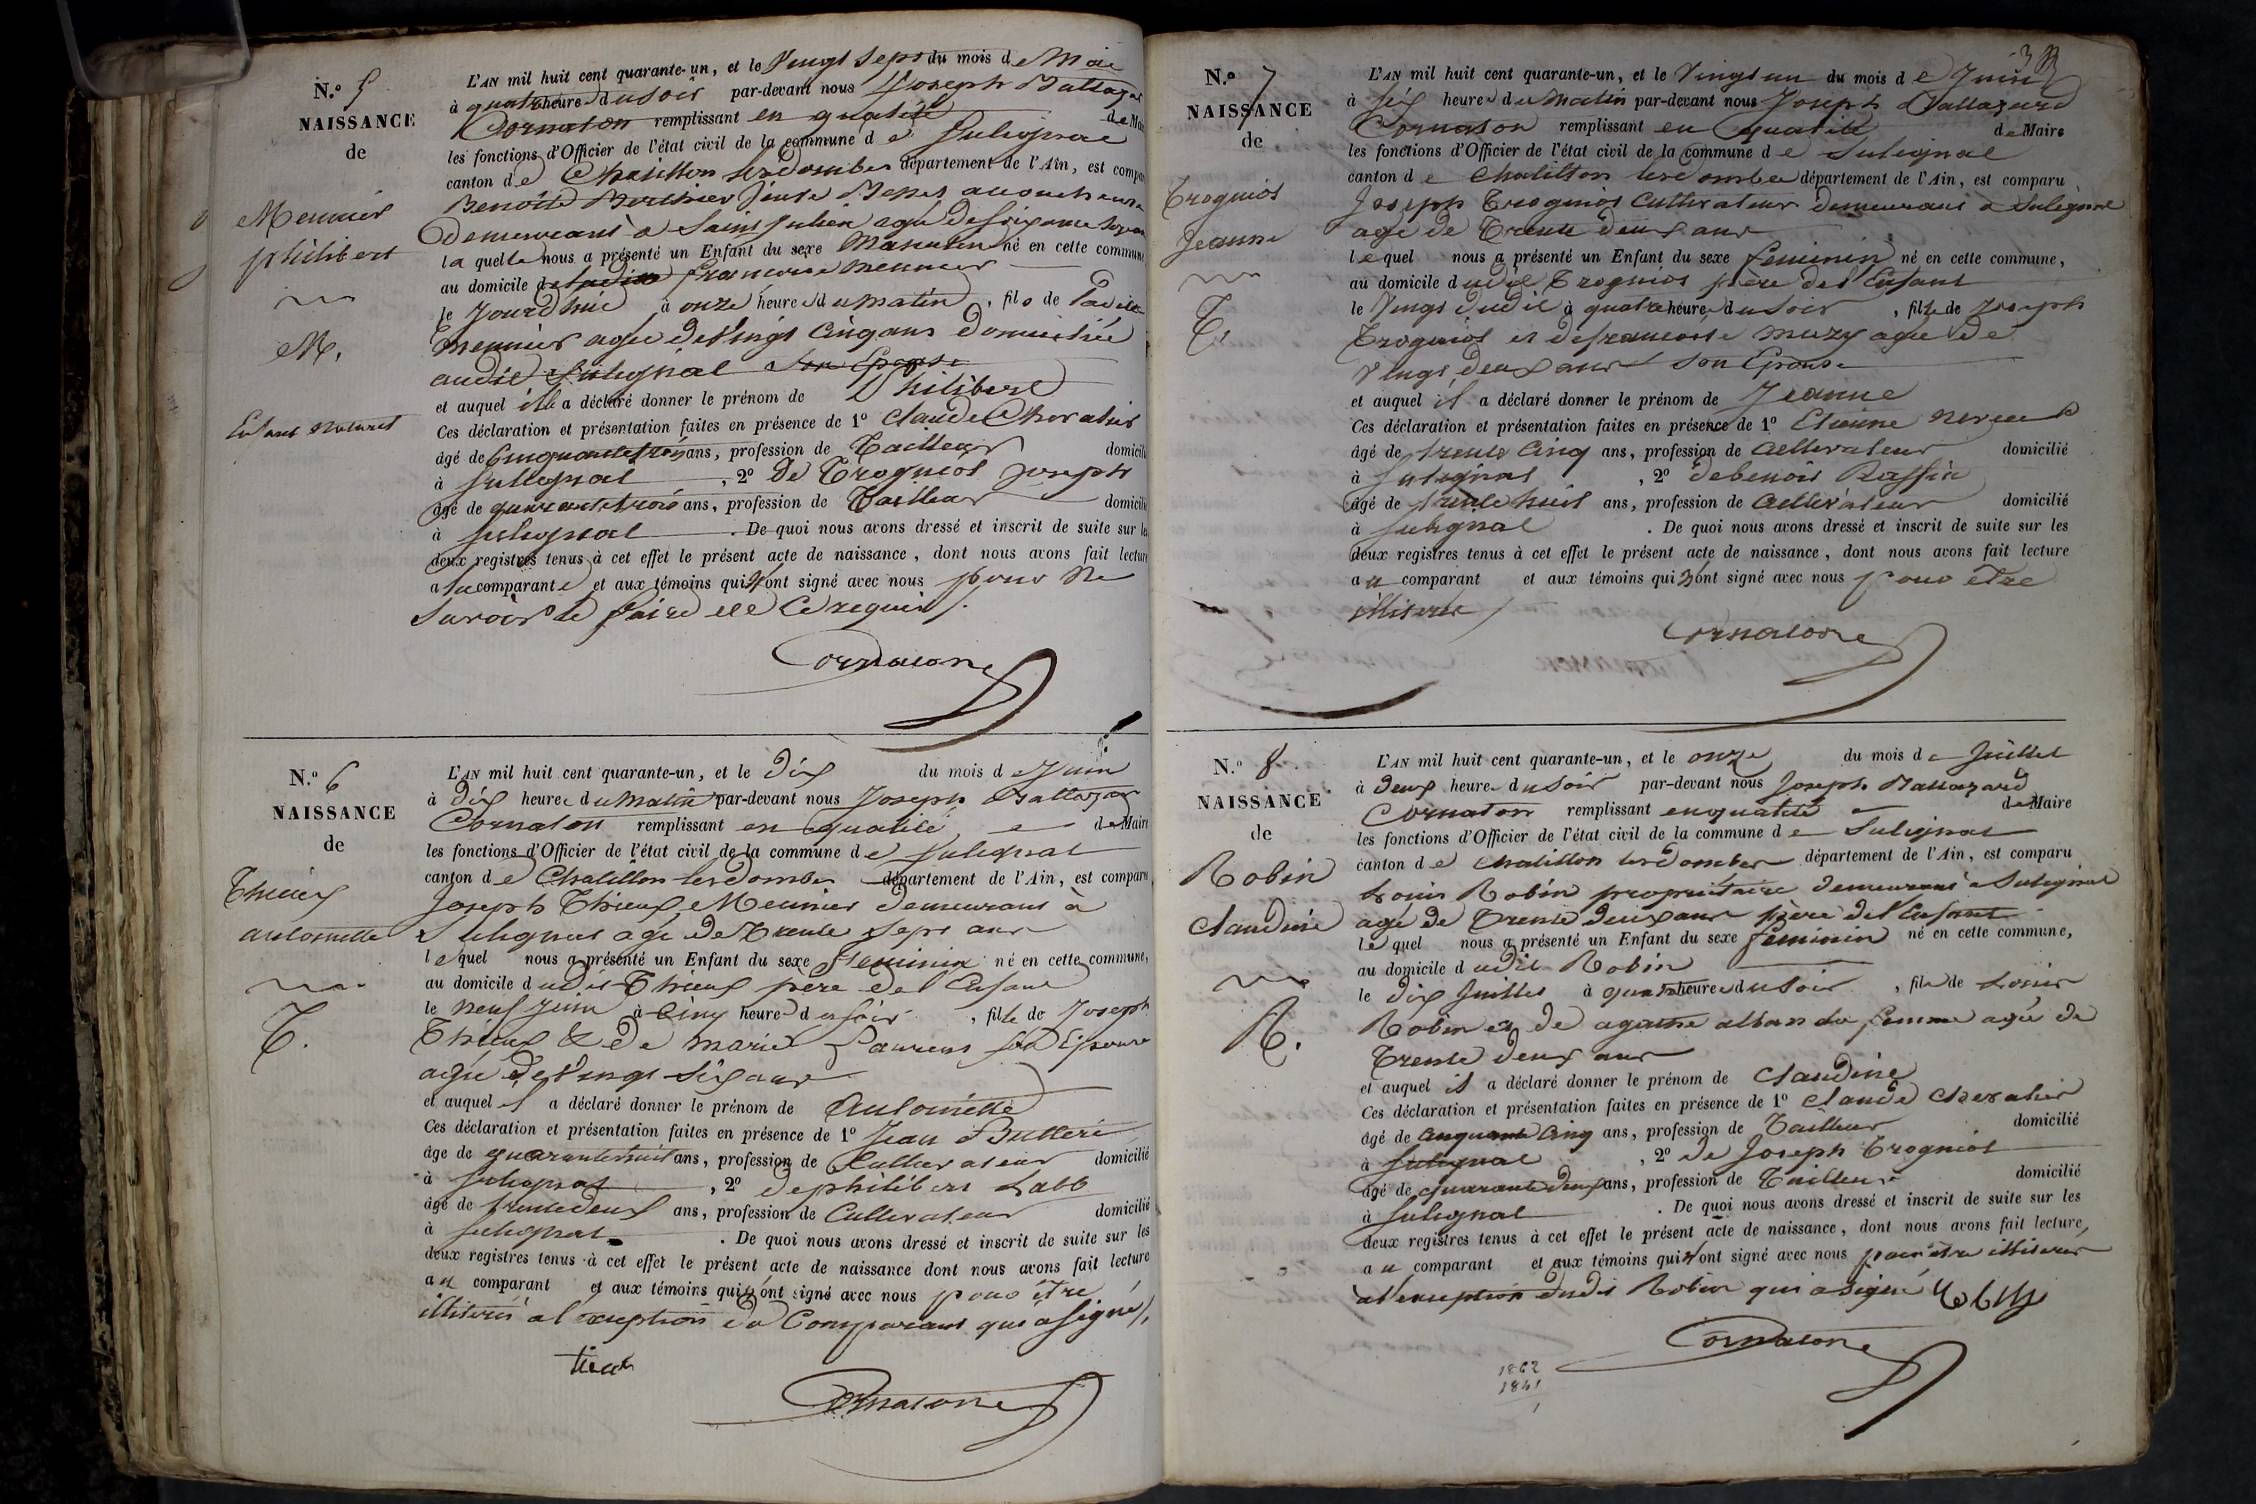 N.º 5
NAISSANCE
de
Meunier
philibert
M.
Enfant naturel
L'AN mil huit cent quarante-un, et le Vingt Sept du mois de Mai
à quatre heures du soir par-devant nous Joseph Baltazar
Cornaton remplissant en qualité de Maire
les fonctions d'Officier de l'état civil de la commune de Sulignat
canton de Chatillon les Dombes département de l'Ain, est comparu
Benoîte Berthier accoucheuse
Demeurant à Saint Julien agée de soixante
la quelle nous a présenté un Enfant du sexe Masculin né en cette commune
au domicile de ladite francoise meunier
le jourdhui à onze heures du matin, fils de Ladite
meunier agée de Vingt Cinq ans Domiciliée
audit Sulignat son Epouse
et auquel elle a déclaré donner le prénom de Philibert
Ces déclaration et présentation faites en présence de 1º Claude Chevalier
âgé de Cinquante ans, profession de Tailleur domicilié
à Sulignat, 2º de Trogniot joseph
âgé de quarante trois ans, profession de Tailleur domicilié
à sulignat. De quoi nous avons dressé et inscrit de suite sur les
deux registres tenus à cet effet le présent acte de naissance, dont nous avons fait lecture
a la comparante et aux témoins qui n'ont signé avec nous pour ne
Savoir le faire de ce requis.
Cornaton
N.º 6
NAISSANCE
de
Thieux
antoinette
T.
L'AN mil huit cent quarante-un, et le Dix du mois de Juin
à Dix heures du Matin par-devant nous Joseph Baltazar
Cornaton remplissant en qualité de Maire
les fonctions d'Officier de l'état civil de la commune de Sulignat
canton de Chatillon les Dombes département de l'Ain, est comparu
Joseph Thieux Meunier demeurant à
Sulignat agé de Trente sept ans
lequel nous a présenté un Enfant du sexe Feminin né en cette commune,
au domicile dudit Thieux père de l'Enfant
le neuf juin à Cinq heures du soir, fille de Joseph
Thieux & de marie Laurent son Epouse
agée de Vingt six ans
et auquel il a déclaré donner le prénom de Antoinette
Ces déclaration et présentation faites en présence de 1º Jean Butteri
âgé de quarante huit ans, profession de Cultivateur domicilié
à sulignat, 2º de philibert Labb
âgé de trente deux ans, profession de Cultivateur domicilié
à sulignat. De quoi nous avons dressé et inscrit de suite sur les
deux registres tenus à cet effet le présent acte de naissance dont nous avons fait lecture
au comparant et aux témoins qui n'ont signé avec nous pour être
illiterés a l'exception du Comparant qui a signé
tieux
Cornaton
N.º 7
NAISSANCE
de
Trogniot
Jeanne
T.
L'AN mil huit cent quarante-un, et le Vingt un du mois de Juin
à six heures du Matin par-devant nous Joseph Baltazard
Cornaton remplissant en qualité de Maire
les fonctions d'Officier de l'état civil de la commune de Sulignat
canton de Chatillon les Dombes département de l'Ain, est comparu
Joseph Trogniot Cultivateur Demeurant a Sulignat
agé de Trente deux ans
lequel nous a présenté un Enfant du sexe feminin né en cette commune,
au domicile dudit Trogniot père de l'Enfant
le Vingt dudit à quatre heures du soir, fille de Joseph
Trogniot et de francoise muzy agée de
Vingt deux ans son Epouse
et auquel il a déclaré donner le prénom de Jeanne
Ces déclaration et présentation faites en présence de 1º Etienne
âgé de trente Cinq ans, profession de Cultivateur domicilié
à Sulignat, 2º de benoit Raffin
âgé de trente huit ans, profession de Cultivateur domicilié
à sulignat. De quoi nous avons dressé et inscrit de suite sur les
deux registres tenus à cet effet le présent acte de naissance, dont nous avons fait lecture
au comparant et aux témoins qui n'ont signé avec nous pour être
illiterés
Cornaton
N.º 8
NAISSANCE
de
Robin
Claudine
R.
L'AN mil huit cent quarante-un, et le onze du mois de Juillet
à Deux heures du soir par-devant nous Joseph Baltazard
Cornaton remplissant en qualité de Maire
les fonctions d'Officier de l'état civil de la commune de Sulignat
canton de Chatillon les Dombes département de l'Ain, est comparu
Louis Robin propriétaire demeurant a Sulignat
agé de Trente deux ans père de l'Enfant
lequel nous a présenté un Enfant du sexe feminin né en cette commune,
au domicile dudit Robin
le Dix Juillet à quatre heures du soir, fille de Louis
Robin et de agathe alban sa femme agée de
Trente deux ans
et auquel il a déclaré donner le prénom de Claudine
Ces déclaration et présentation faites en présence de 1º Claude Chevalier
âgé de Cinquante Cinq ans, profession de Tailleur domicilié
à Sulignat, 2º de Joseph Trogniot
âgé de quarante deux ans, profession de Tailleur domicilié
à Sulignat. De quoi nous avons dressé et inscrit de suite sur les
deux registres tenus à cet effet le présent acte de naissance, dont nous avons fait lecture,
au comparant et aux témoins qui n'ont signé avec nous pour être illiterés
a l'exception dudit Robin qui a signé
Cornaton
1862
1841